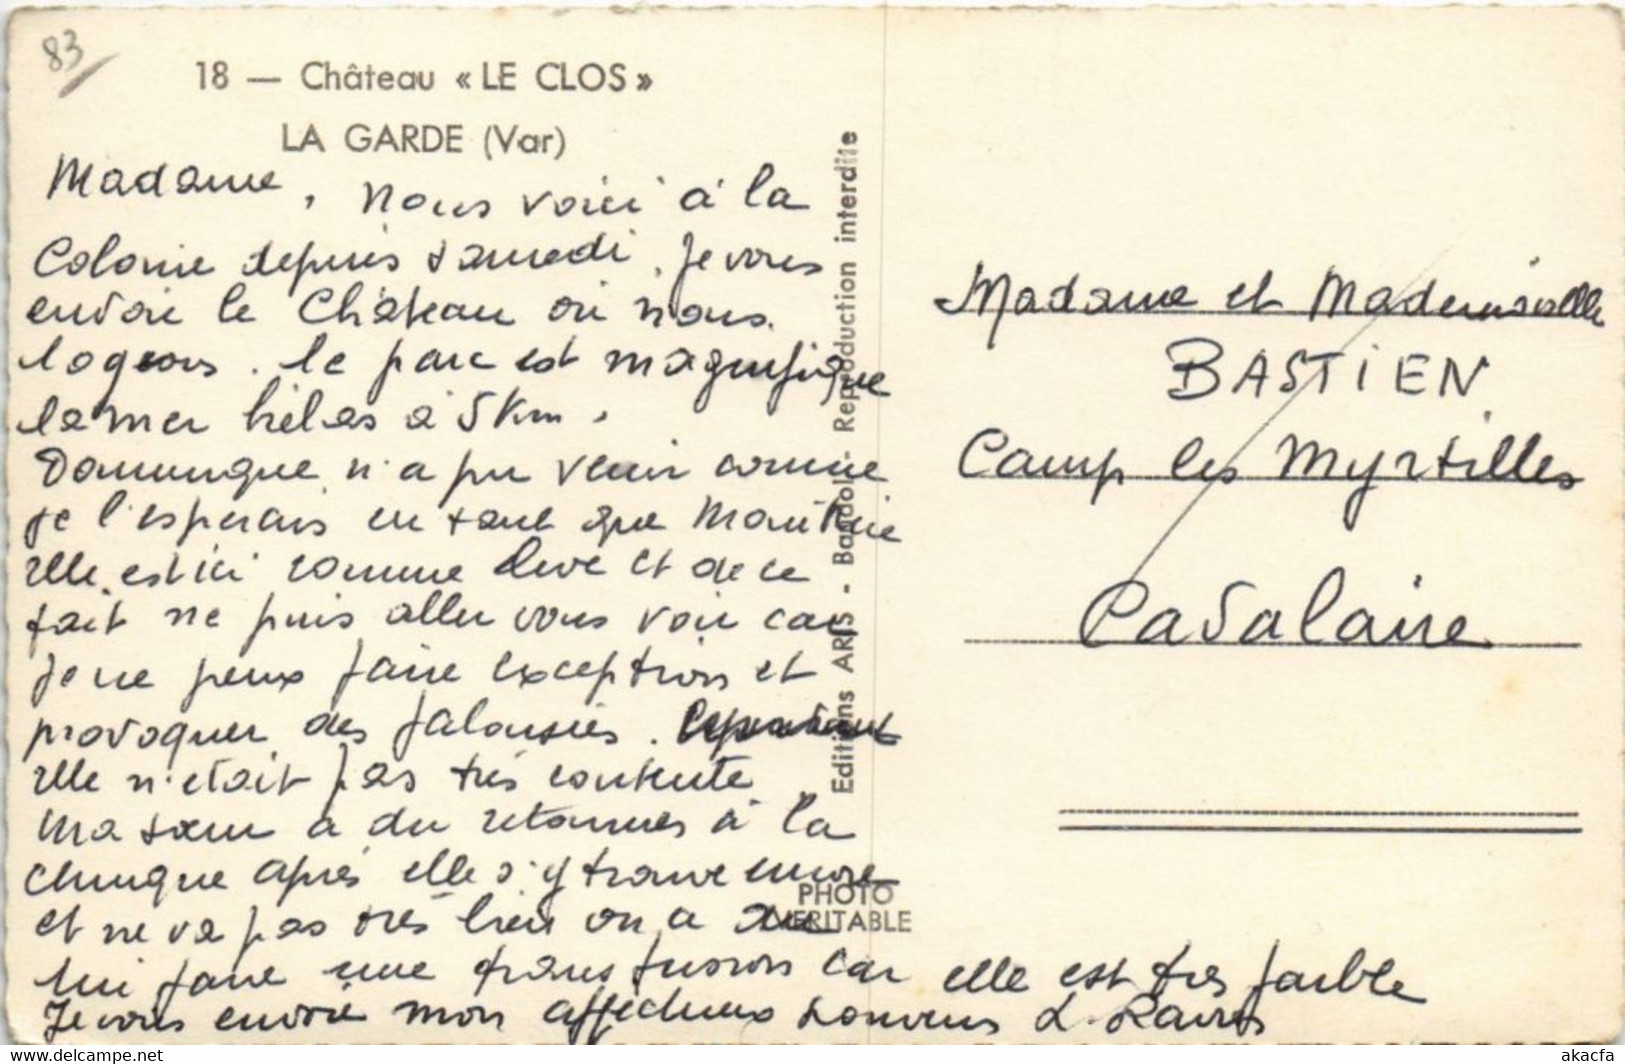 83
18 — Château « LE CLOS »
LA GARDE (Var)
Madame, Nous voici à la
Colonie depuis samedi. Je vous
envoie le Château où nous
logeons. le parc est magnifique
la mer hélas à 5 Km.
Dominique n'a pu venir comme
je l'esperais en tant que Monitrice
elle est ici comme élève et de ce
fait ne puis aller vous voir car
je ne peux faire exception et
provoquer des jalousies. Cependant
elle n'était pas très contente
Ma sœur a du retourner à la
clinique après elle s'y trouve encore
et ne va pas très bien on a du
lui faire une transfusion car elle est très faible
Je vous envoie mon affectueux souvenir L.
Editions ARIS - Bandol - Reproduction interdite
PHOTO
VERITABLE
Madame et Mademoiselle
BASTIEN
Camp les Myrtilles
Cavalaire
akacfa
www.delcampe.net